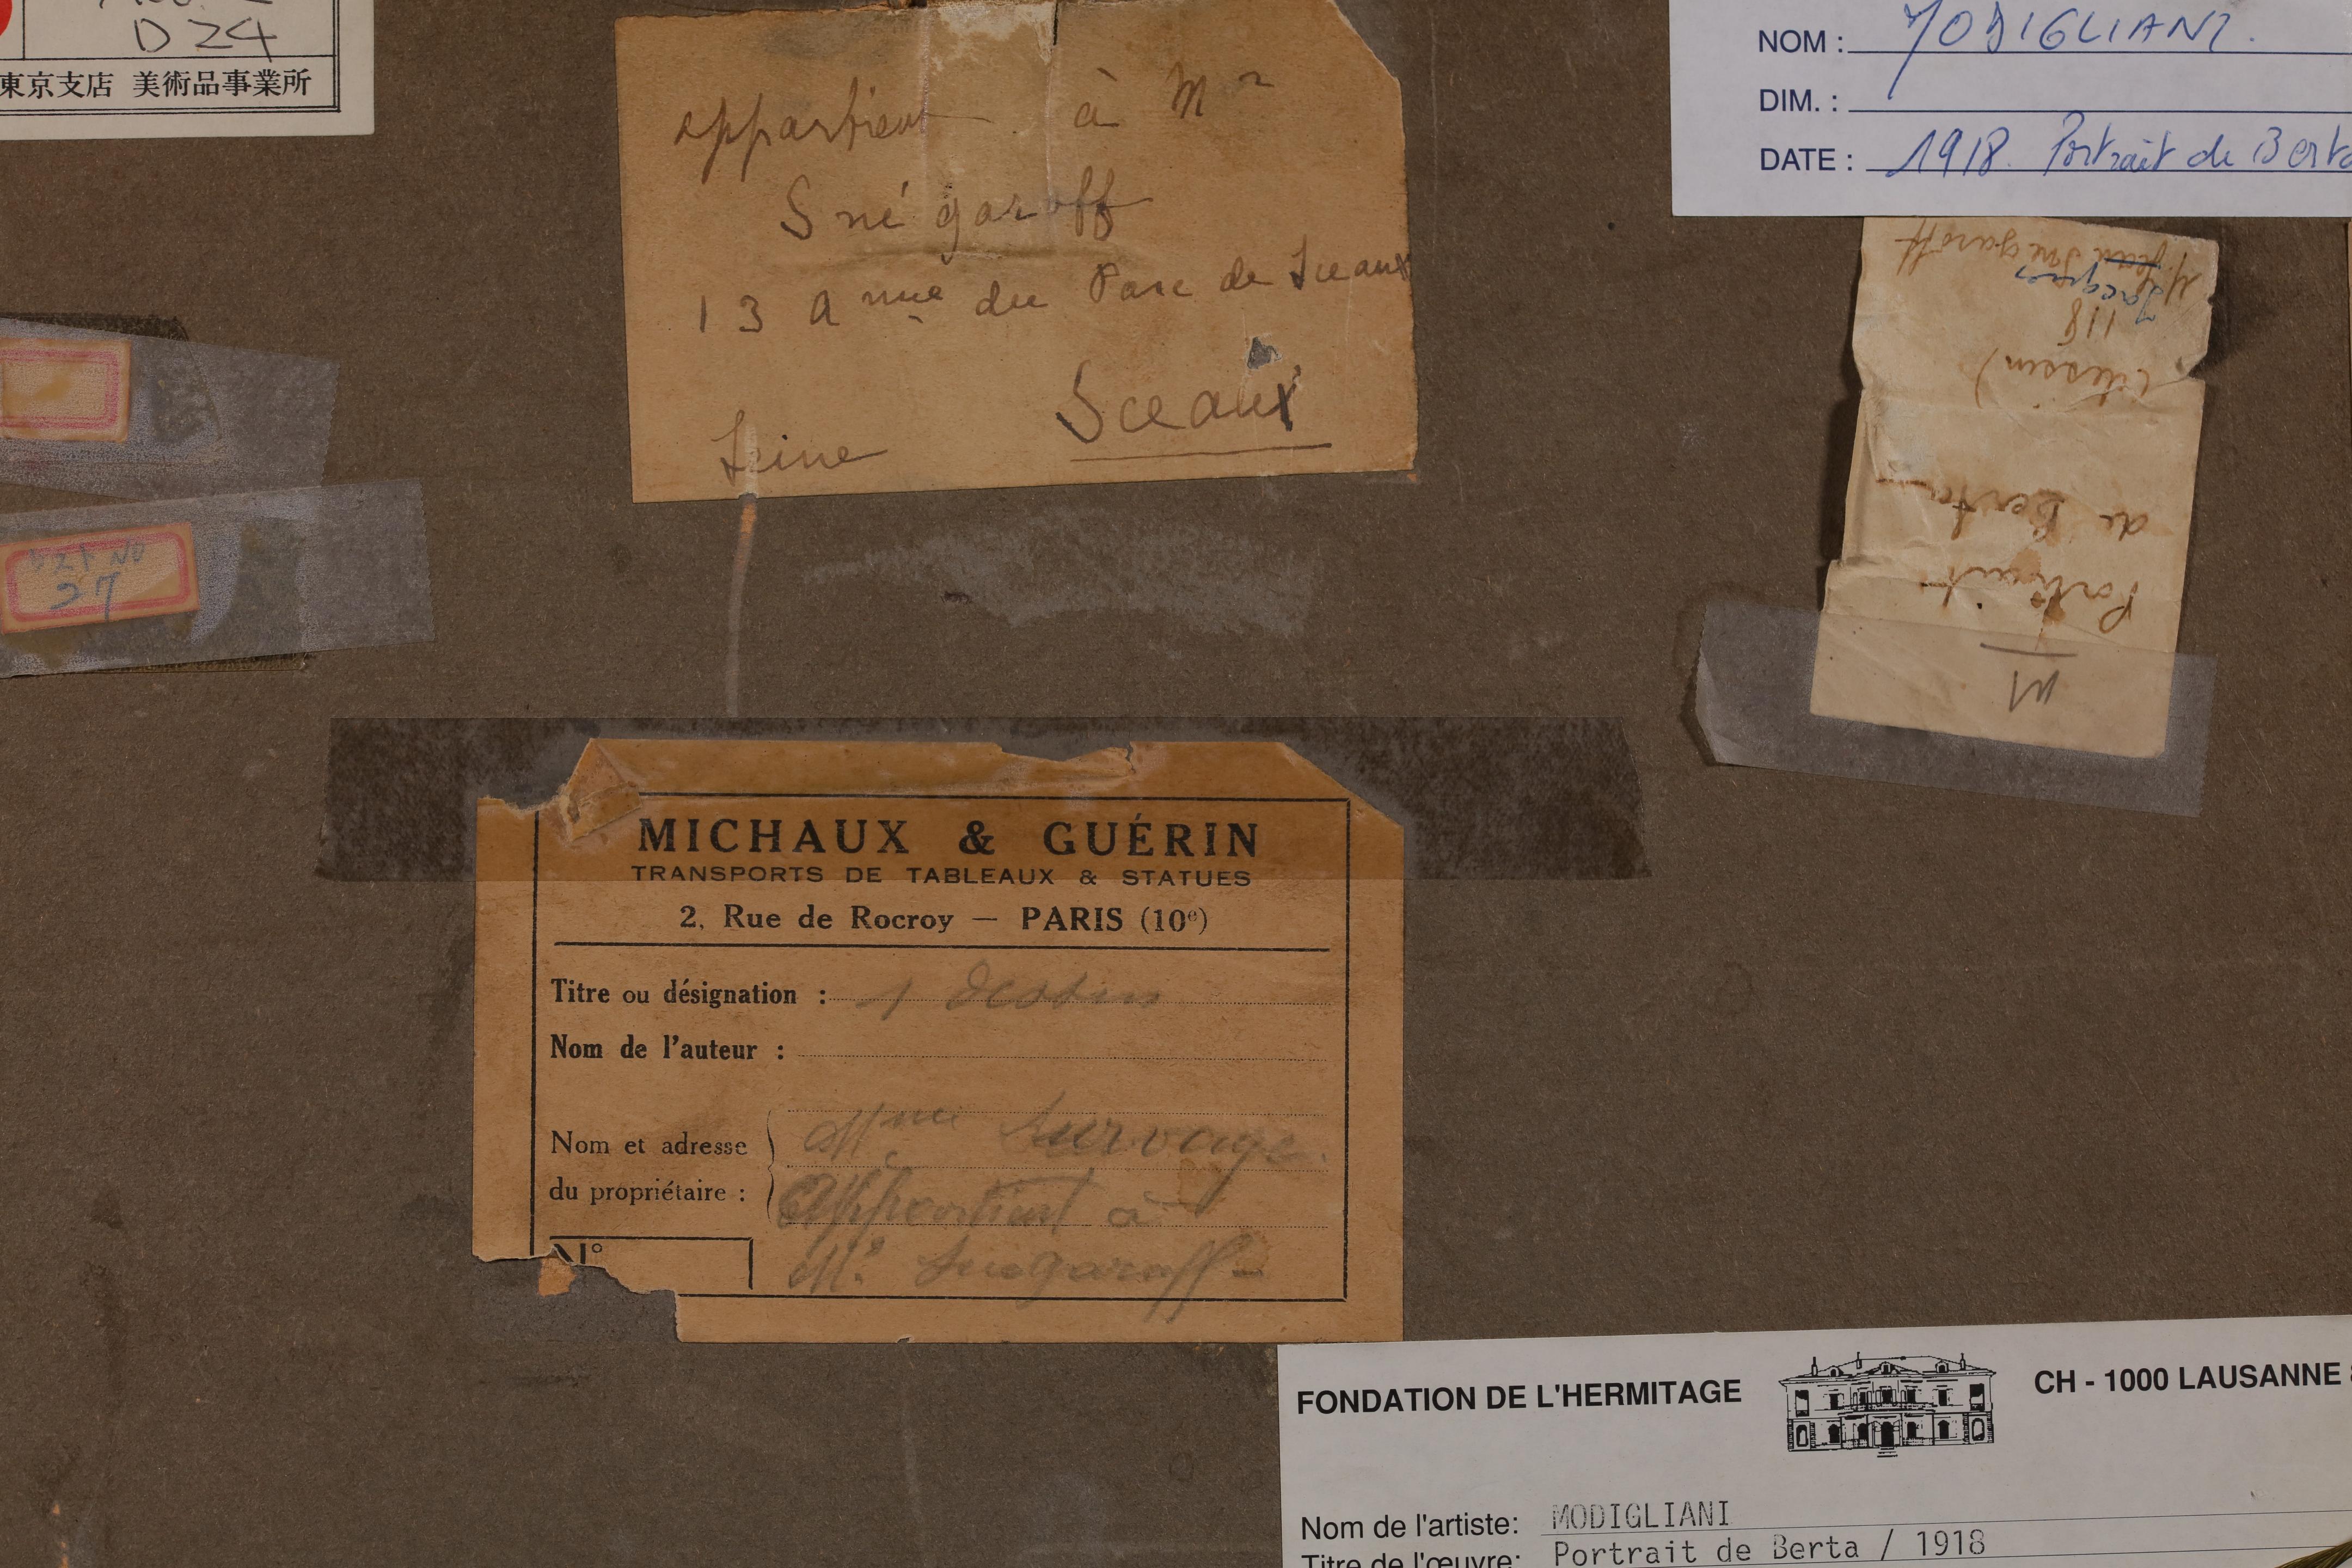 D 24
東京支店 美術品事業所
appartient à Mr
Snégaroff
13 Anue du Parc de Sceaux
Sceaux
Seine
NOM : MODIGLIANI.
DIM. :
DATE : 1918. Portrait de Berta
M
Portrait
de Berta
(dessin)
118
Jacques
M. Jean Snegaroff
27
MICHAUX & GUÉRIN
TRANSPORTS DE TABLEAUX & STATUES
2, Rue de Rocroy — PARIS (10e)
Titre ou désignation : 1 dessin
Nom de l'auteur :
Nom et adresse
du propriétaire :
Mme Survage.
Appartient à
Mr. Snegaroff
N°
FONDATION DE L'HERMITAGE
CH - 1000 LAUSANNE
Nom de l'artiste: MODIGLIANI
Titre de l'œuvre: Portrait de Berta / 1918